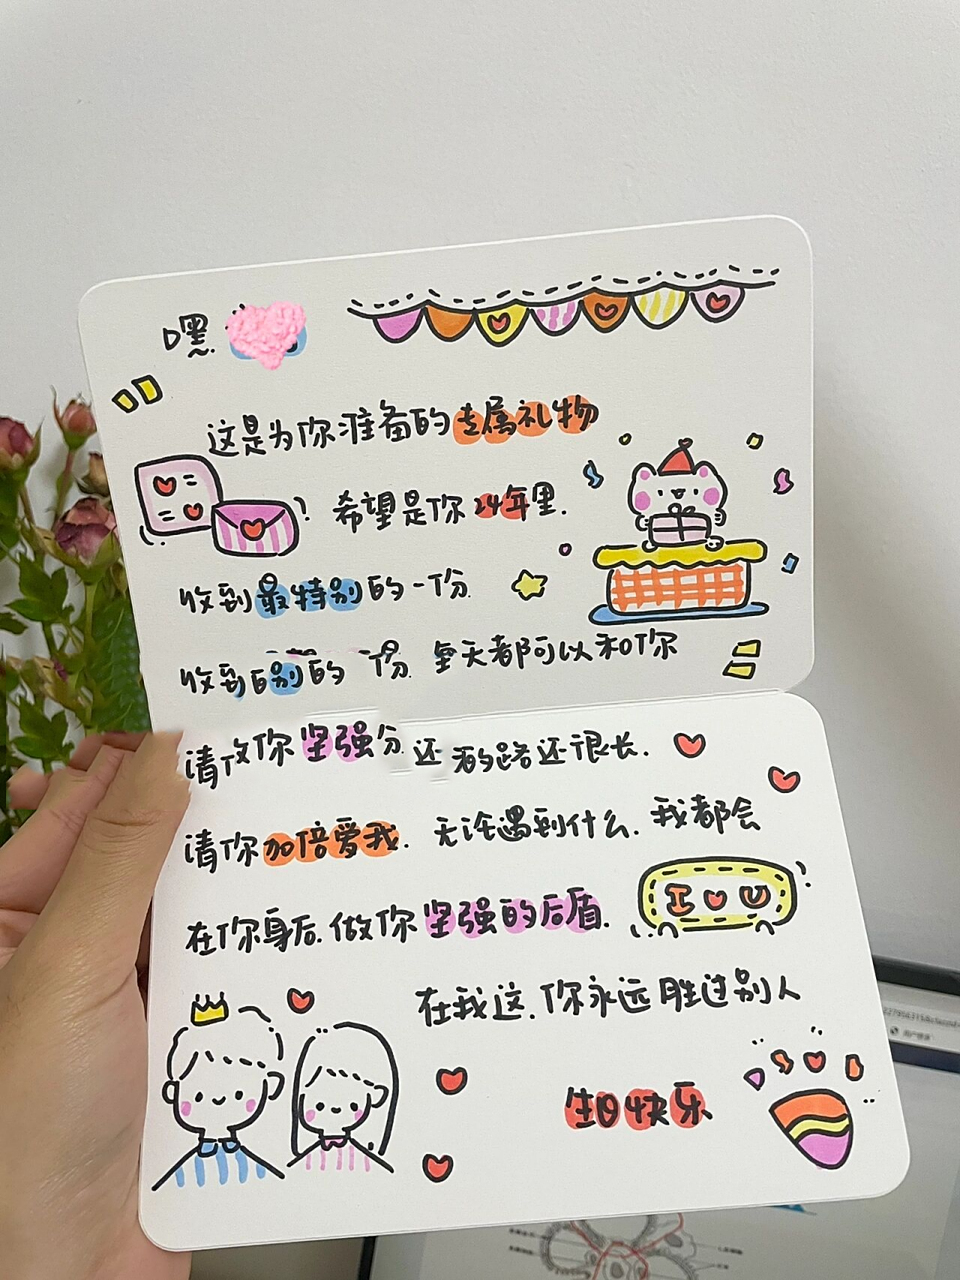 嘿
这是为你准备的专属礼物
希望是你24年里.
收到最特别的一份
收到 别的 份 天都可以和你
请 你坚强 还 的路还很长.
请你加倍爱我. 无论遇到什么. 我都会
在你身后. 做你坚强的后盾.
I U
在我这. 你永远胜过别人
生日快乐